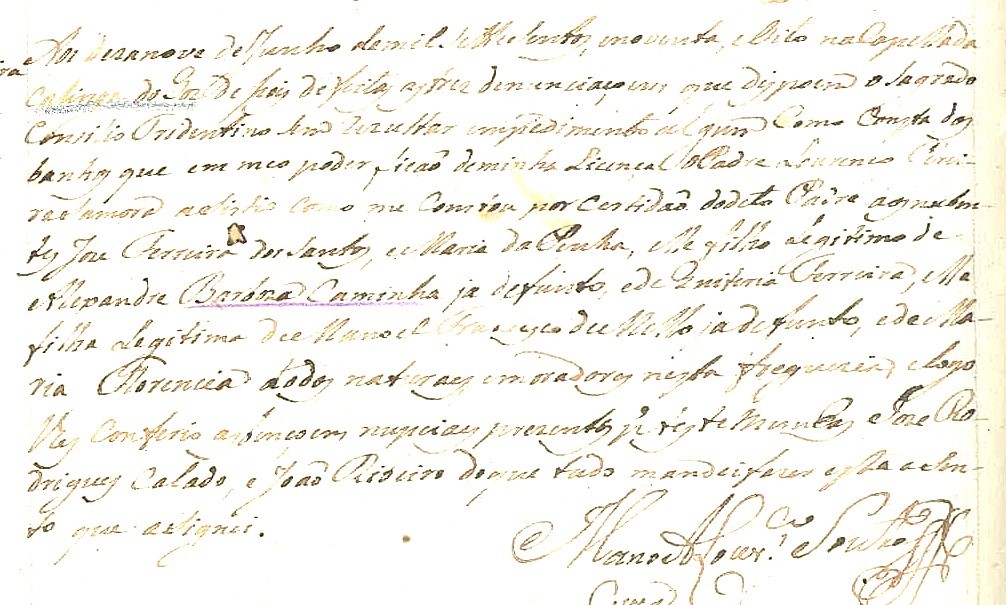 Aos dezanove de Junho de mil Settesentos, enoventa, eOito na Capella da
do de pois de feitas as tres denunciaçoens que dispoem o Sagrado
Consilio Tridentino Sem Rezultar impedimento algum Como Consta dos
banhos que em meo poder ficaõ de minha Licença O Padre Lourenço
asistio como me Constou por Certidaõ dodito Padre
Joze Ferreira dos Santos, e Maria da Penha, elle filho Legitimo de
Alexandre Barboza Caminha ja defunto, ede Quiteria Ferreira, ella
filha Legitima de Manoel Francisco de Mello ja defunto, ede Ma-
ria Florencia todos naturaes emoradores nesta freguezia, elogo
lhes Conferio as bençoens nupciaes prezentes p.r testemunhas Joze Ro-
drigues Calado, e Joaõ Ribeiro doque tudo mandei fazer este asen-
to que asignei.
Mano